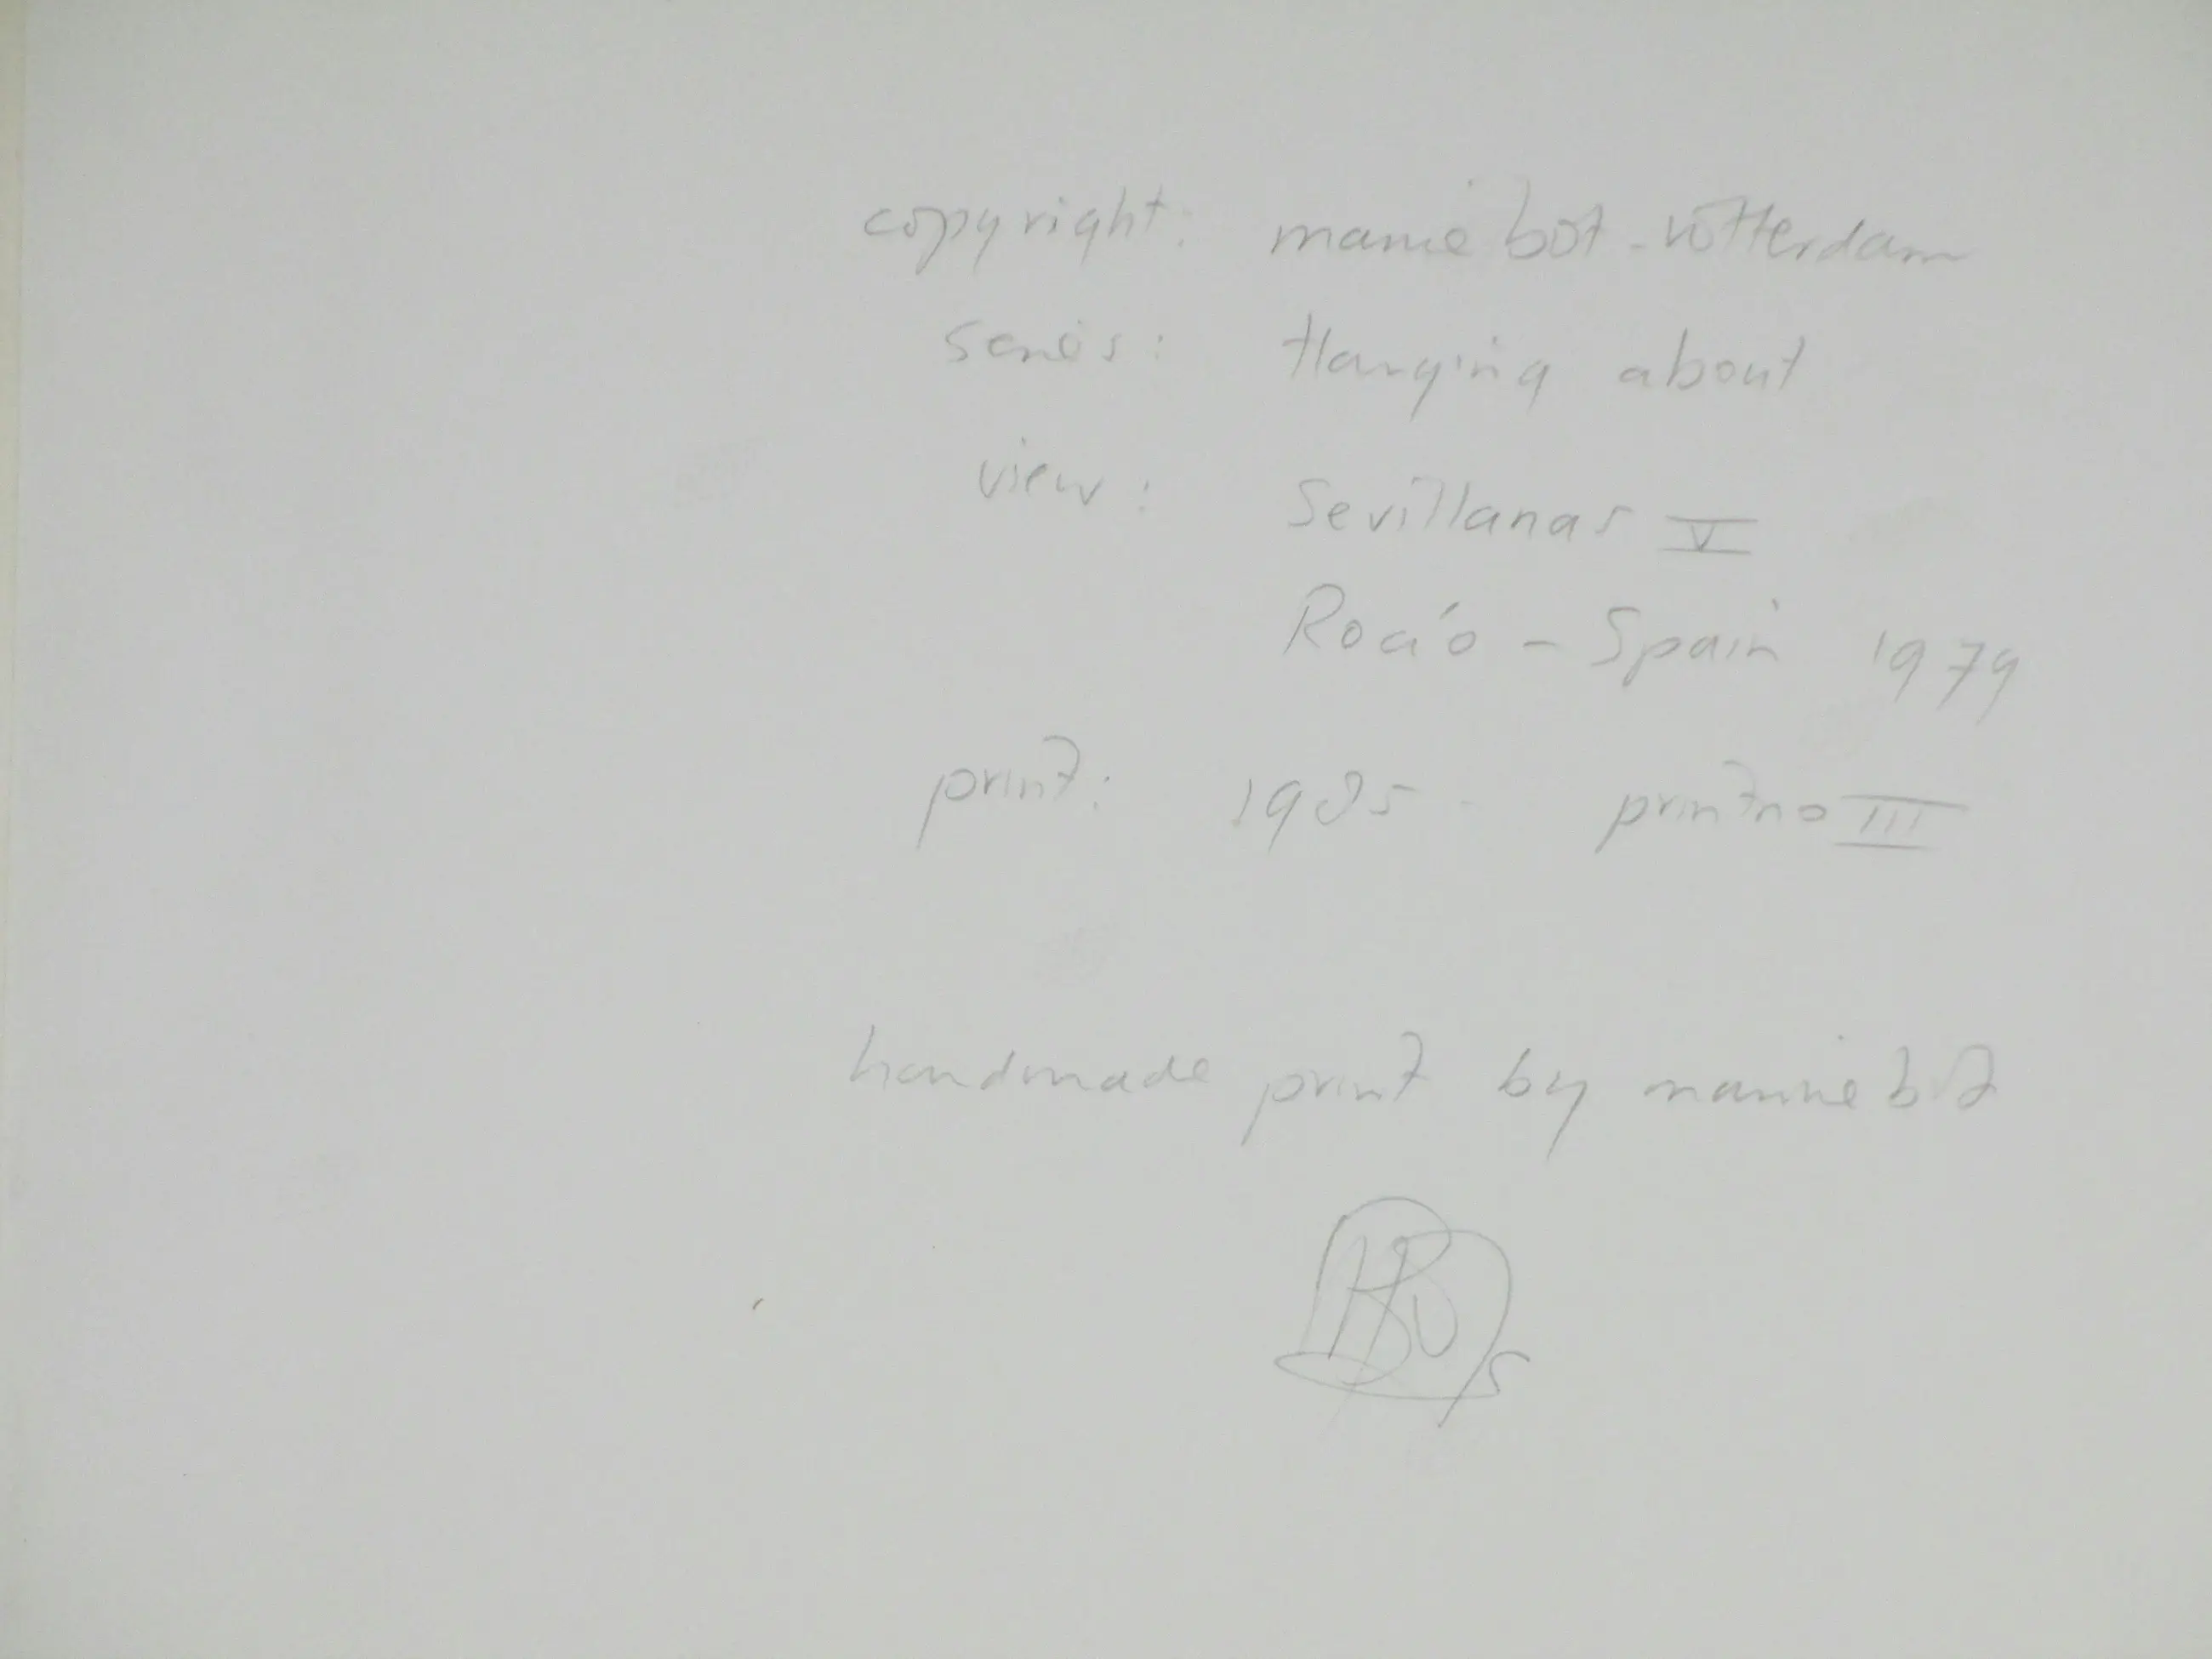 copyright: marrie bot - rotterdam
series: Hanging about
view: Sevillanas V
Rocío - Spain 1979
print: 1985 - printno III
handmade print by marrie bot